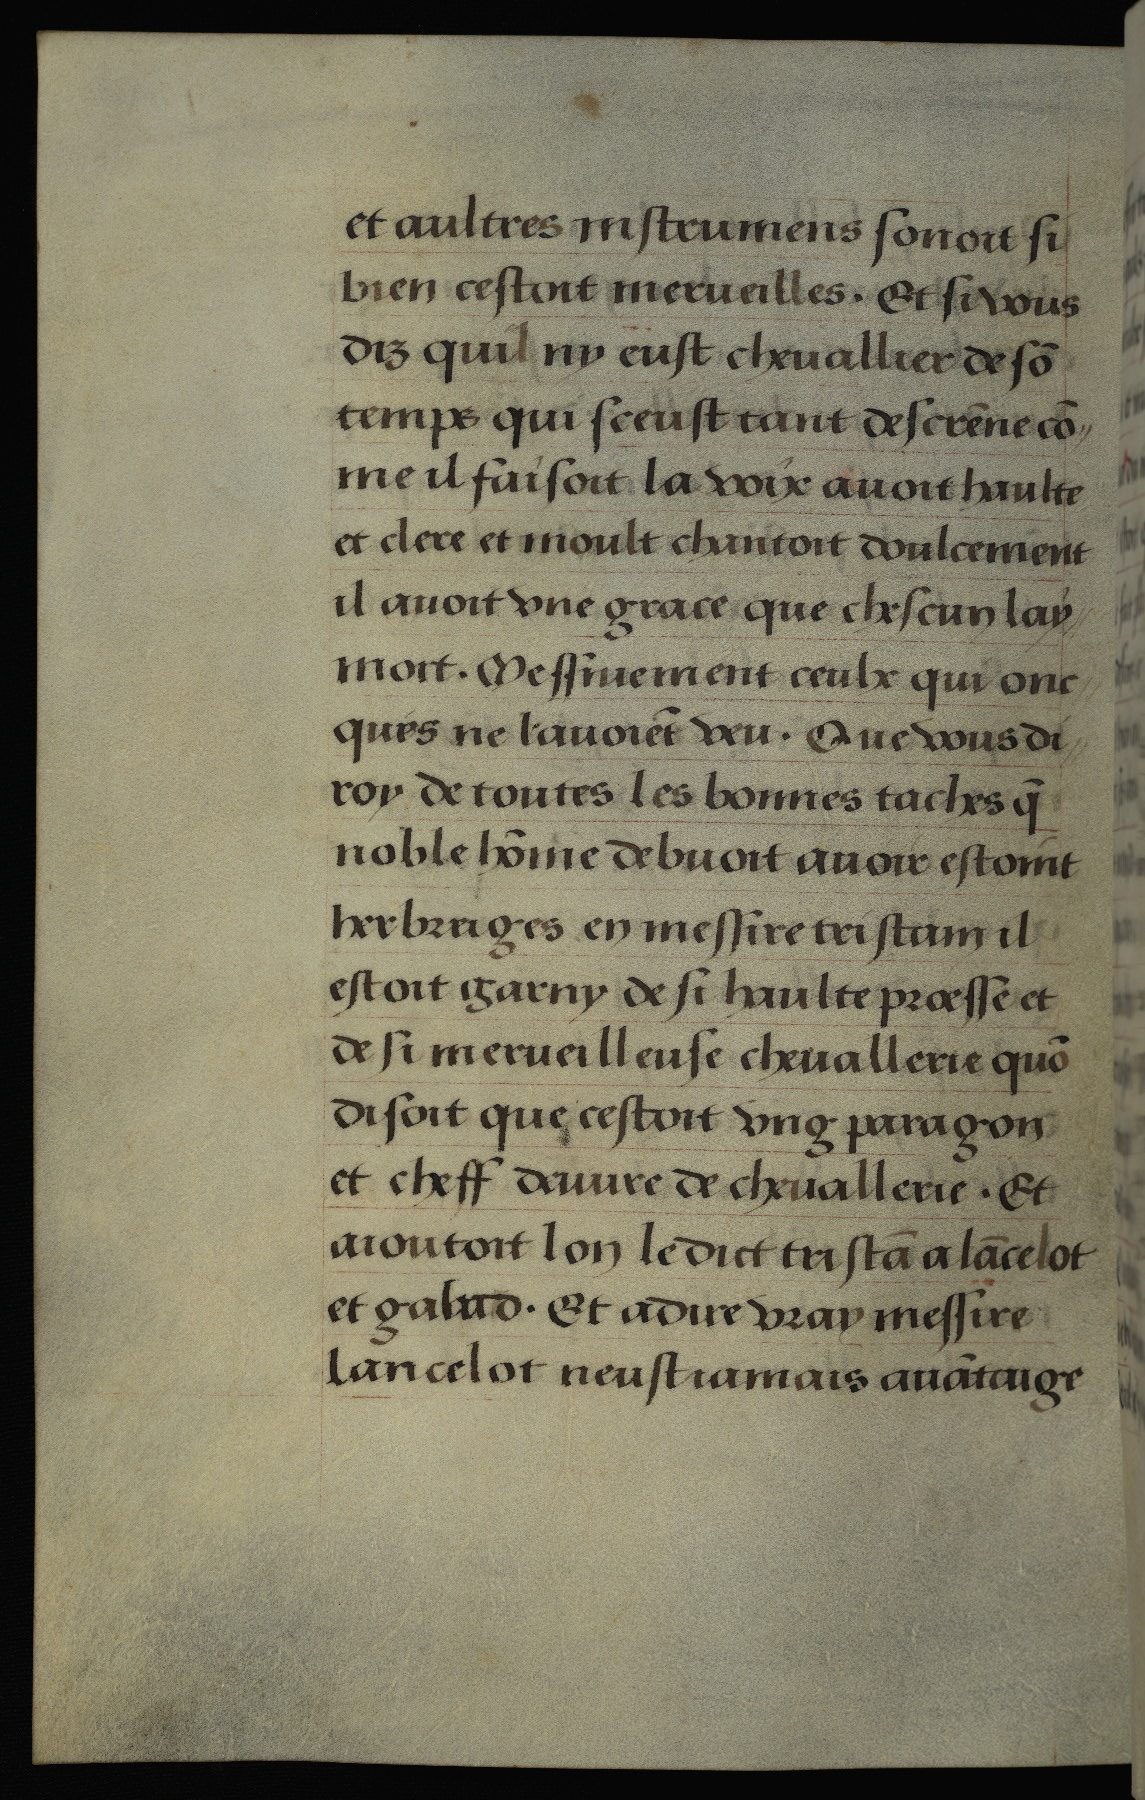 et aultres instrumens sonoit si
bien cestoit merueilles. Et si vous
diz quil ny eust cheuallier de sõ
temps qui sceust tant descrẽne cõ
me il faisoit la voix auoit haulte
et clere et moult chantoit doulcement
il auoit vne grace que chescun lay
moit. Messiuement ceulx qui onc
ques ne lauoiẽt veu. Que vous di
roy de toutes les bonnes taches q̃
noble hõme debuoit auoir estoint
herbreiges en messire tristam il
estoit garny de si haulte proesse et
de si merueilleuse cheuallerie quõ
disoit que cestoit vng paragon
et cheff deuure de cheuallerie. Et
aioutoit lon ledict tristã a lãcelot
et galaad. Et adire vray messire
lancelot neust iamais auãtaige